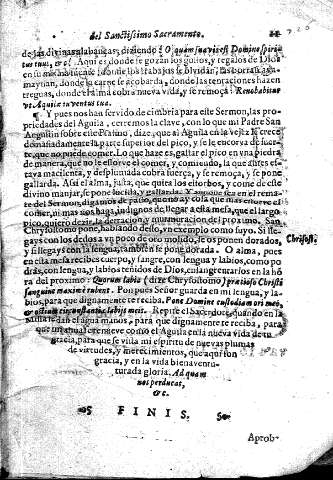 del Sanctissimo Sacramento.
de las divinas alabanças, diziendo: O quam suavis est Domine spiri
tus tuus, &c. Aqui es donde se gozan los gustos, y regalos de Dios
en su misma fuente: donde los trabajos se olvidan, las borrascas a
maynan, donde la carne se acobarda, donde las tentaciones hazen
treguas, donde el alma cobra nueva vida, y se remoça: Renovabitur
ut Aquilæ iuventus tua.
Y pues nos han servido de cimbria para este Sermon, las pro
piedades del Aguila, cerremos la clave, con lo que mi Padre San
Augustin sobre este Psalmo, dize, que al Aguila en la vejez le crece
demasiadamente la parte superior del pico, y se le encorva de fuer
te, que no puede comer. Lo que haze es, gastar el pico en una piedra
de manera, que no le estorve el comer, y comiendo, la que antes es
tava macilenta, y desplumada cobra fuerça, y se remoça, y se pone
gallarda. Assi el alma, justa, que quita los estorbos, y come de este
divino manjar, se pone lucida, y gallarda.
comer, ni mas nos haga indignos de llegar a esta mesa, que el largo
pico, quiero dezir, la detraccion, y murmuracion del proximo. San
Chrysostomo pone, hablando desto, un exemplo como suyo. Si lle
gays con los dedos a un poco de oro molido, se os ponen dorados,
y si llegays con la lengua, tambien se pone dorada. O alma, pues
en esta mesa recibes cuerpo, y sangre, con lengua, y labios, como po
dràs, con lengua, y labios teñidos de Dios, ensangrentarlos en la hõ
ra del proximo: Quorum labia (dize Chrysostomo) pretioso Christi
sanguine maximè rubent. Pon pues Señor guarda en mi lengua, y la-
bios, para que dignamente te reciba. Pone Domine custodiam ori meo,
& ostium circunstantiæ labijs meis. Repite el Sacerdote, quando en la
Missa le dan el agua manos, para que dignamente te reciba, para
que mi alma se renueve como el Aguila en la nueva vida de tu
gracia, para que se vista mi espiritu de nuevas plumas
de virtudes, y merecimientos, que aqui son
gracia, y en la vida bienaventu-
turada gloria. Ad quam
nos perducat,
&c.
FINIS.
Chrisost.
Aprob-